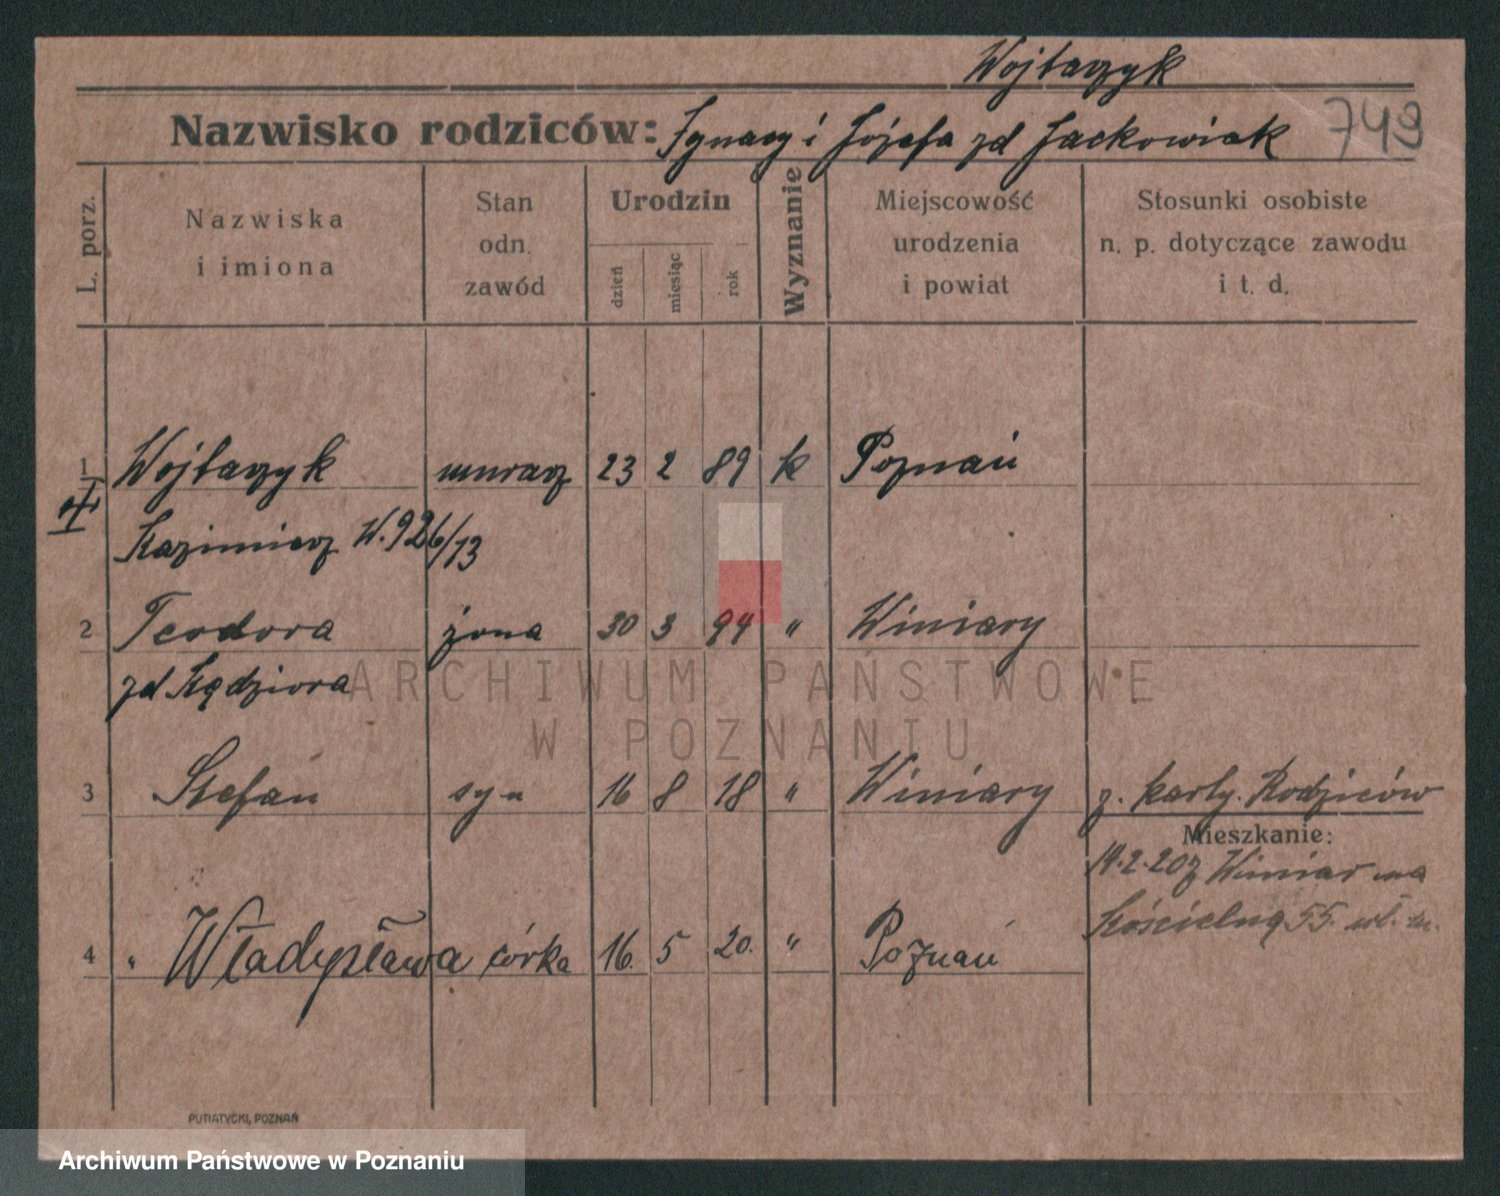 Wojtaszyk
Nazwisko rodziców: Ignacy i Józefa zd Jackowiak 749
L. porz.
Nazwiska i imiona
Stan odn. zawód
Urodzin
dzień miesiąc rok
Wyznanie
Miejscowość urodzenia i powiat
Stosunki osobiste n. p. dotyczące zawodu i t. d.
1 Wojtaszyk murarz 23 2 89 k Poznań
Kazimierz W. 926/13
2 Teodora żona 30 3 94 " Winiary
zd Kądziora
3 Stefan syn 16 8 18 " Winiary z. karty. Rodziców
Mieszkanie:
14.2.20 z Winiar na
Kościelną 55.
4 " Władysława córka 16. 5 20. " Poznań
PUTIATYCKI, POZNAŃ
ARCHIWUM PAŃSTWOWE
W POZNANIU
Archiwum Państwowe w Poznaniu